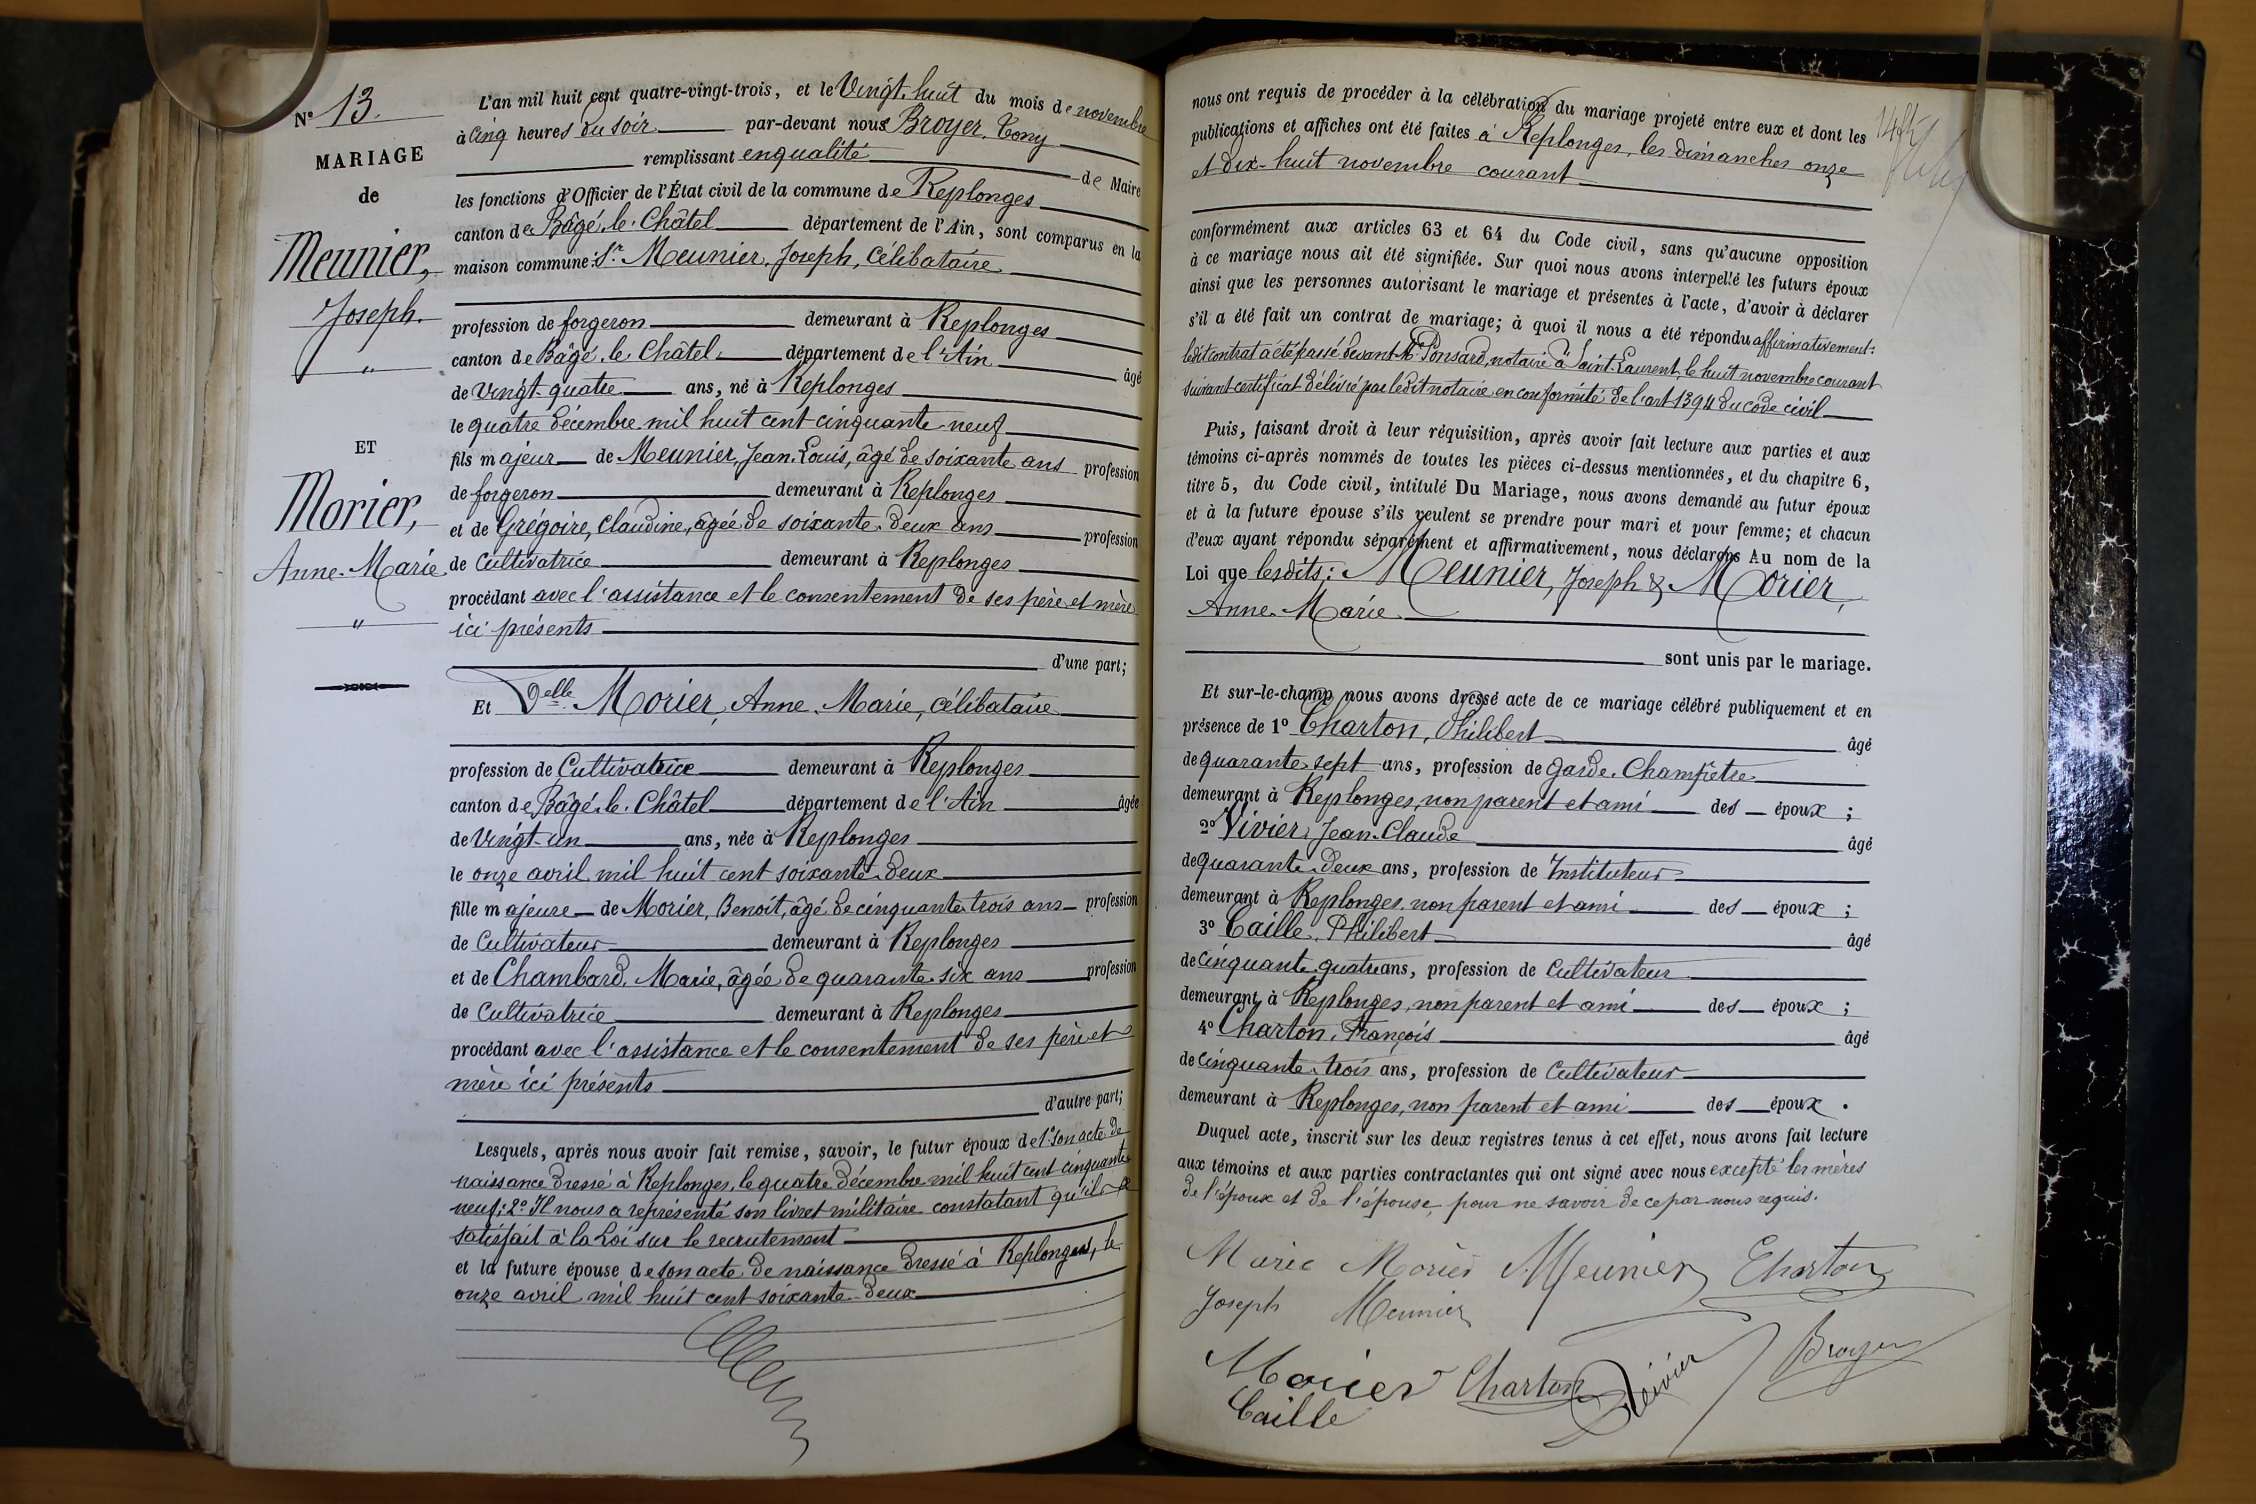 N° 13.
MARIAGE
de
Meunier,
Joseph.
"
ET
Morier,
Anne-Marie
"
L'an mil huit cent quatre-vingt-trois, et le Vingt-huit du mois de novembre
à Cinq heures du soir par-devant nous Broyer, Tony
remplissant en qualité de Maire
les fonctions d'Officier de l'État civil de la commune de Replonges
canton de Bâgé-le-Châtel département de l'Ain, sont comparus en la
maison commune: Sr Meunier, Joseph, célibataire
profession de forgeron demeurant à Replonges
canton de Bâgé-le-Châtel, département de l'Ain âgé
de Vingt-quatre ans, né à Replonges
le quatre décembre mil huit cent cinquante neuf
fils majeur de Meunier, Jean-Louis, âgé de soixante ans profession
de forgeron demeurant à Replonges
et de Grégoire, Claudine, âgée de soixante-deux ans profession
de Cultivatrice demeurant à Replonges
procédant avec l'assistance et le consentement de ses père et mère
ici présents
d'une part;
Et Delle Morier, Anne-Marie, célibataire
profession de Cultivatrice demeurant à Replonges
canton de Bâgé-le-Châtel département de l'Ain âgée
de Vingt-un ans, née à Replonges
le onze avril mil huit cent soixante-deux
fille majeure de Morier, Benoit, âgé de cinquante-trois ans profession
de Cultivateur demeurant à Replonges
et de Chambard, Marie, âgée de quarante-six ans profession
de Cultivatrice demeurant à Replonges
procédant avec l'assistance et le consentement de ses père et
mère ici présents
d'autre part;
Lesquels, après nous avoir fait remise, savoir, le futur époux de 1° son acte de
naissance dressé à Replonges, le quatre décembre mil huit cent cinquante
neuf; 2° Il nous a représenté son livret militaire constatant qu'il a
satisfait à la Loi sur le recrutement
et la future épouse de son acte de naissance dressé à Replonges, le
onze avril mil huit cent soixante-deux
nous ont requis de procéder à la célébration du mariage projeté entre eux et dont les
publications et affiches ont été faites à Replonges, les dimanches onze
et dix-huit novembre courant
conformément aux articles 63 et 64 du Code civil, sans qu'aucune opposition
à ce mariage nous ait été signifiée. Sur quoi nous avons interpellé les futurs époux
ainsi que les personnes autorisant le mariage et présentes à l'acte, d'avoir à déclarer
s'il a été fait un contrat de mariage; à quoi il nous a été répondu affirmativement:
ledit contrat a été passé devant Me Ponsard, notaire à Saint-Laurent, le huit novembre courant
suivant certificat délivré par ledit notaire en conformité de l'art 1394 du code civil
Puis, faisant droit à leur réquisition, après avoir fait lecture aux parties et aux
témoins ci-après nommés de toutes les pièces ci-dessus mentionnées, et du chapitre 6,
titre 5, du Code civil, intitulé Du Mariage, nous avons demandé au futur époux
et à la future épouse s'ils veulent se prendre pour mari et pour femme; et chacun
d'eux ayant répondu séparément et affirmativement, nous déclarons Au nom de la
Loi que lesdits: Meunier, Joseph & Morier,
Anne-Marie
sont unis par le mariage.
Et sur-le-champ nous avons dressé acte de ce mariage célébré publiquement et en
présence de 1° Charton, Philibert âgé
de quarante sept ans, profession de garde-Champêtre
demeurant à Replonges, non parent et ami des époux;
2° Vivier, Jean-Claude âgé
de quarante-deux ans, profession de Instituteur
demeurant à Replonges, non parent et ami des époux;
3° Caille, Philibert âgé
de cinquante-quatre ans, profession de Cultivateur
demeurant à Replonges, non parent et ami des époux;
4° Charton, François âgé
de cinquante-trois ans, profession de Cultivateur
demeurant à Replonges, non parent et ami des époux.
Duquel acte, inscrit sur les deux registres tenus à cet effet, nous avons fait lecture
aux témoins et aux parties contractantes qui ont signé avec nous excepté les mères
de l'époux et de l'épouse, pour ne savoir de ce par nous requis.
Marie Morier Meunier Charton
Joseph Meunier
Morier Charton Vivier Broyer
Caille